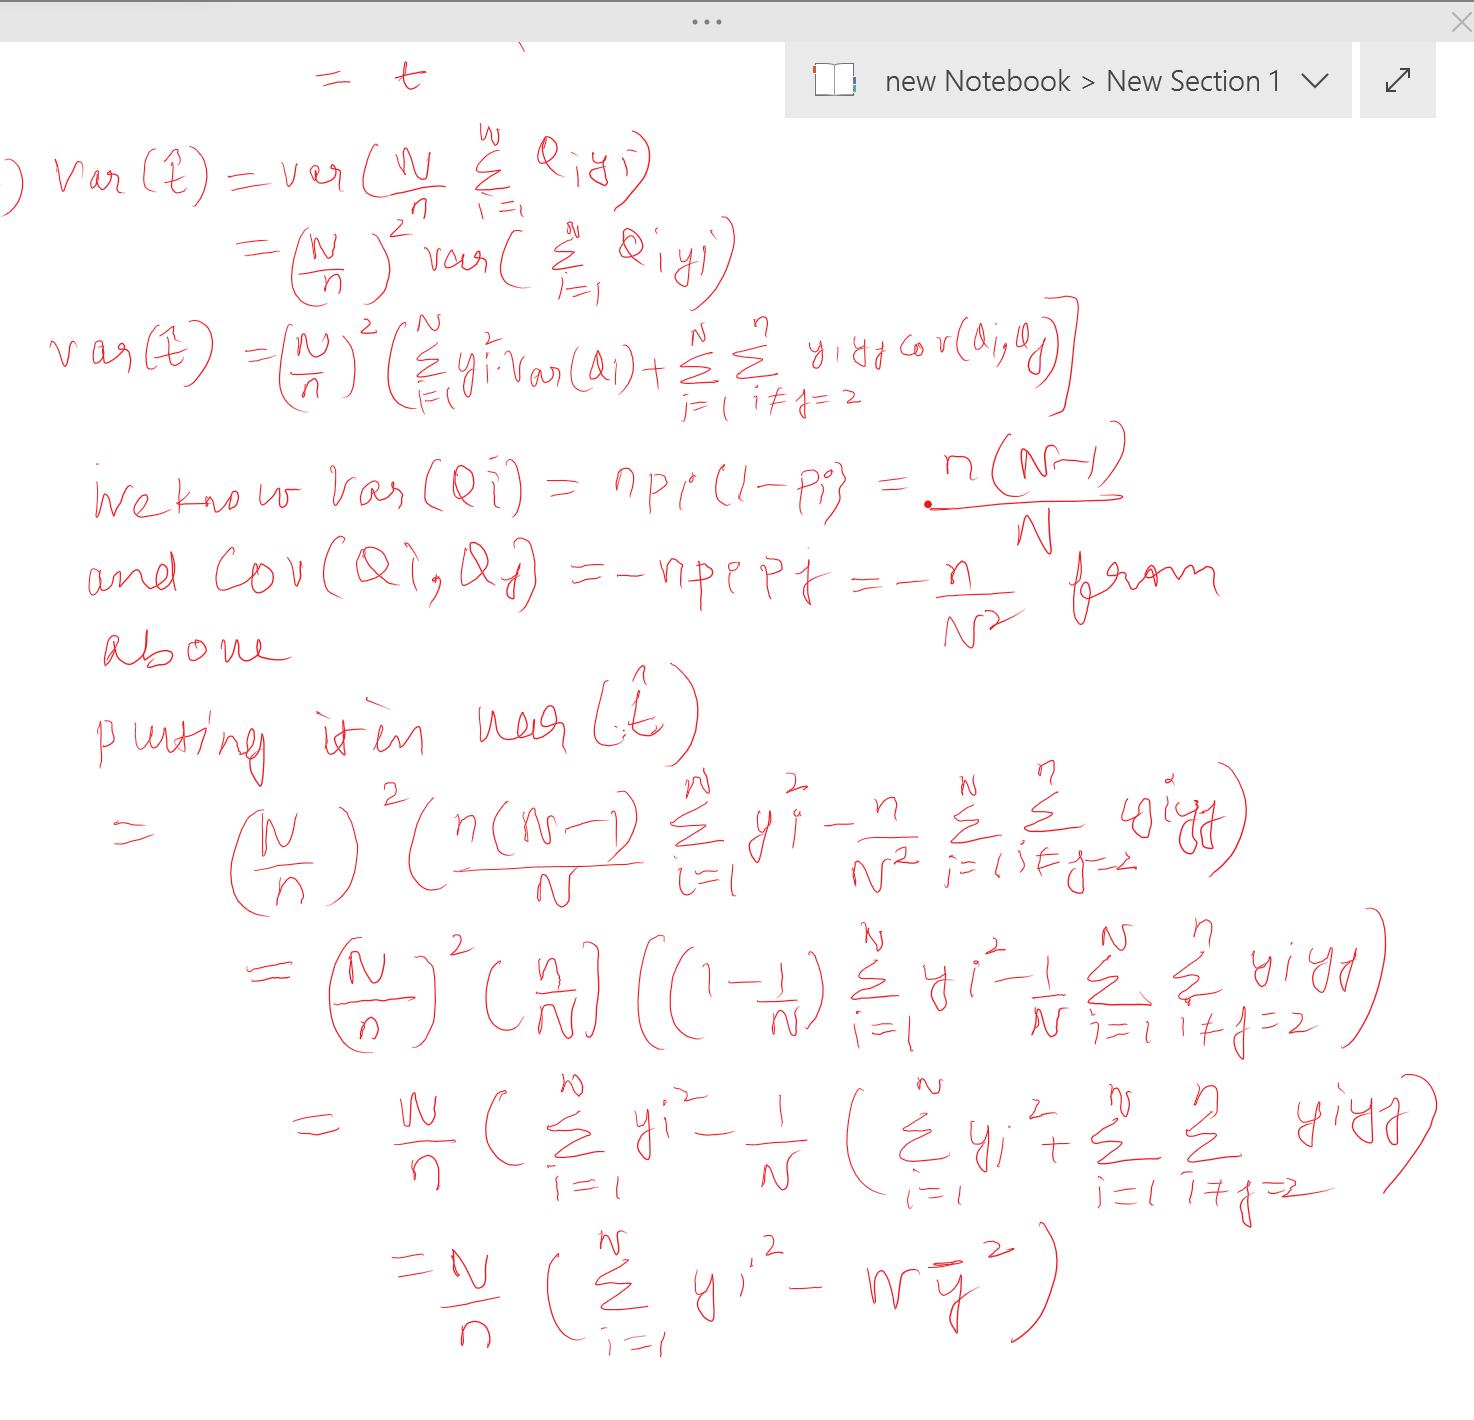 new Notebook > New Section 1
= t
) Var (t̂) = var ( N/n Σ_{i=1}^{N} Q_i y_i )
= (N/n)^2 var ( Σ_{i=1}^{N} Q_i y_i )
var (t̂) = (N/n)^2 ( Σ_{i=1}^{N} y_i^2 . Var (Q_i) + Σ_{i=1}^{N} Σ_{i≠j=2}^{n} y_i y_j cov (Q_i, Q_j) ]
We know Var (Q_i) = n p_i (1 - p_i) = n(N-1)/N
and Cov (Q_i, Q_j) = - n p_i p_j = - n/N^2 from
above
putting it in var (t̂)
= (N/n)^2 ( n(N-1)/N Σ_{i=1}^{N} y_i^2 - n/N^2 Σ_{i=1}^{N} Σ_{i≠j=2}^{n} y_i y_j )
= (N/n)^2 ( n/N ] ( (1 - 1/N) Σ_{i=1}^{N} y_i^2 - 1/N Σ_{i=1}^{N} Σ_{i≠j=2}^{n} y_i y_j )
= N/n ( Σ_{i=1}^{N} y_i^2 - 1/N ( Σ_{i=1}^{N} y_i^2 + Σ_{i=1}^{N} Σ_{i≠j=2}^{n} y_i y_j )
= N/n ( Σ_{i=1}^{N} y_i^2 - N ȳ^2 )